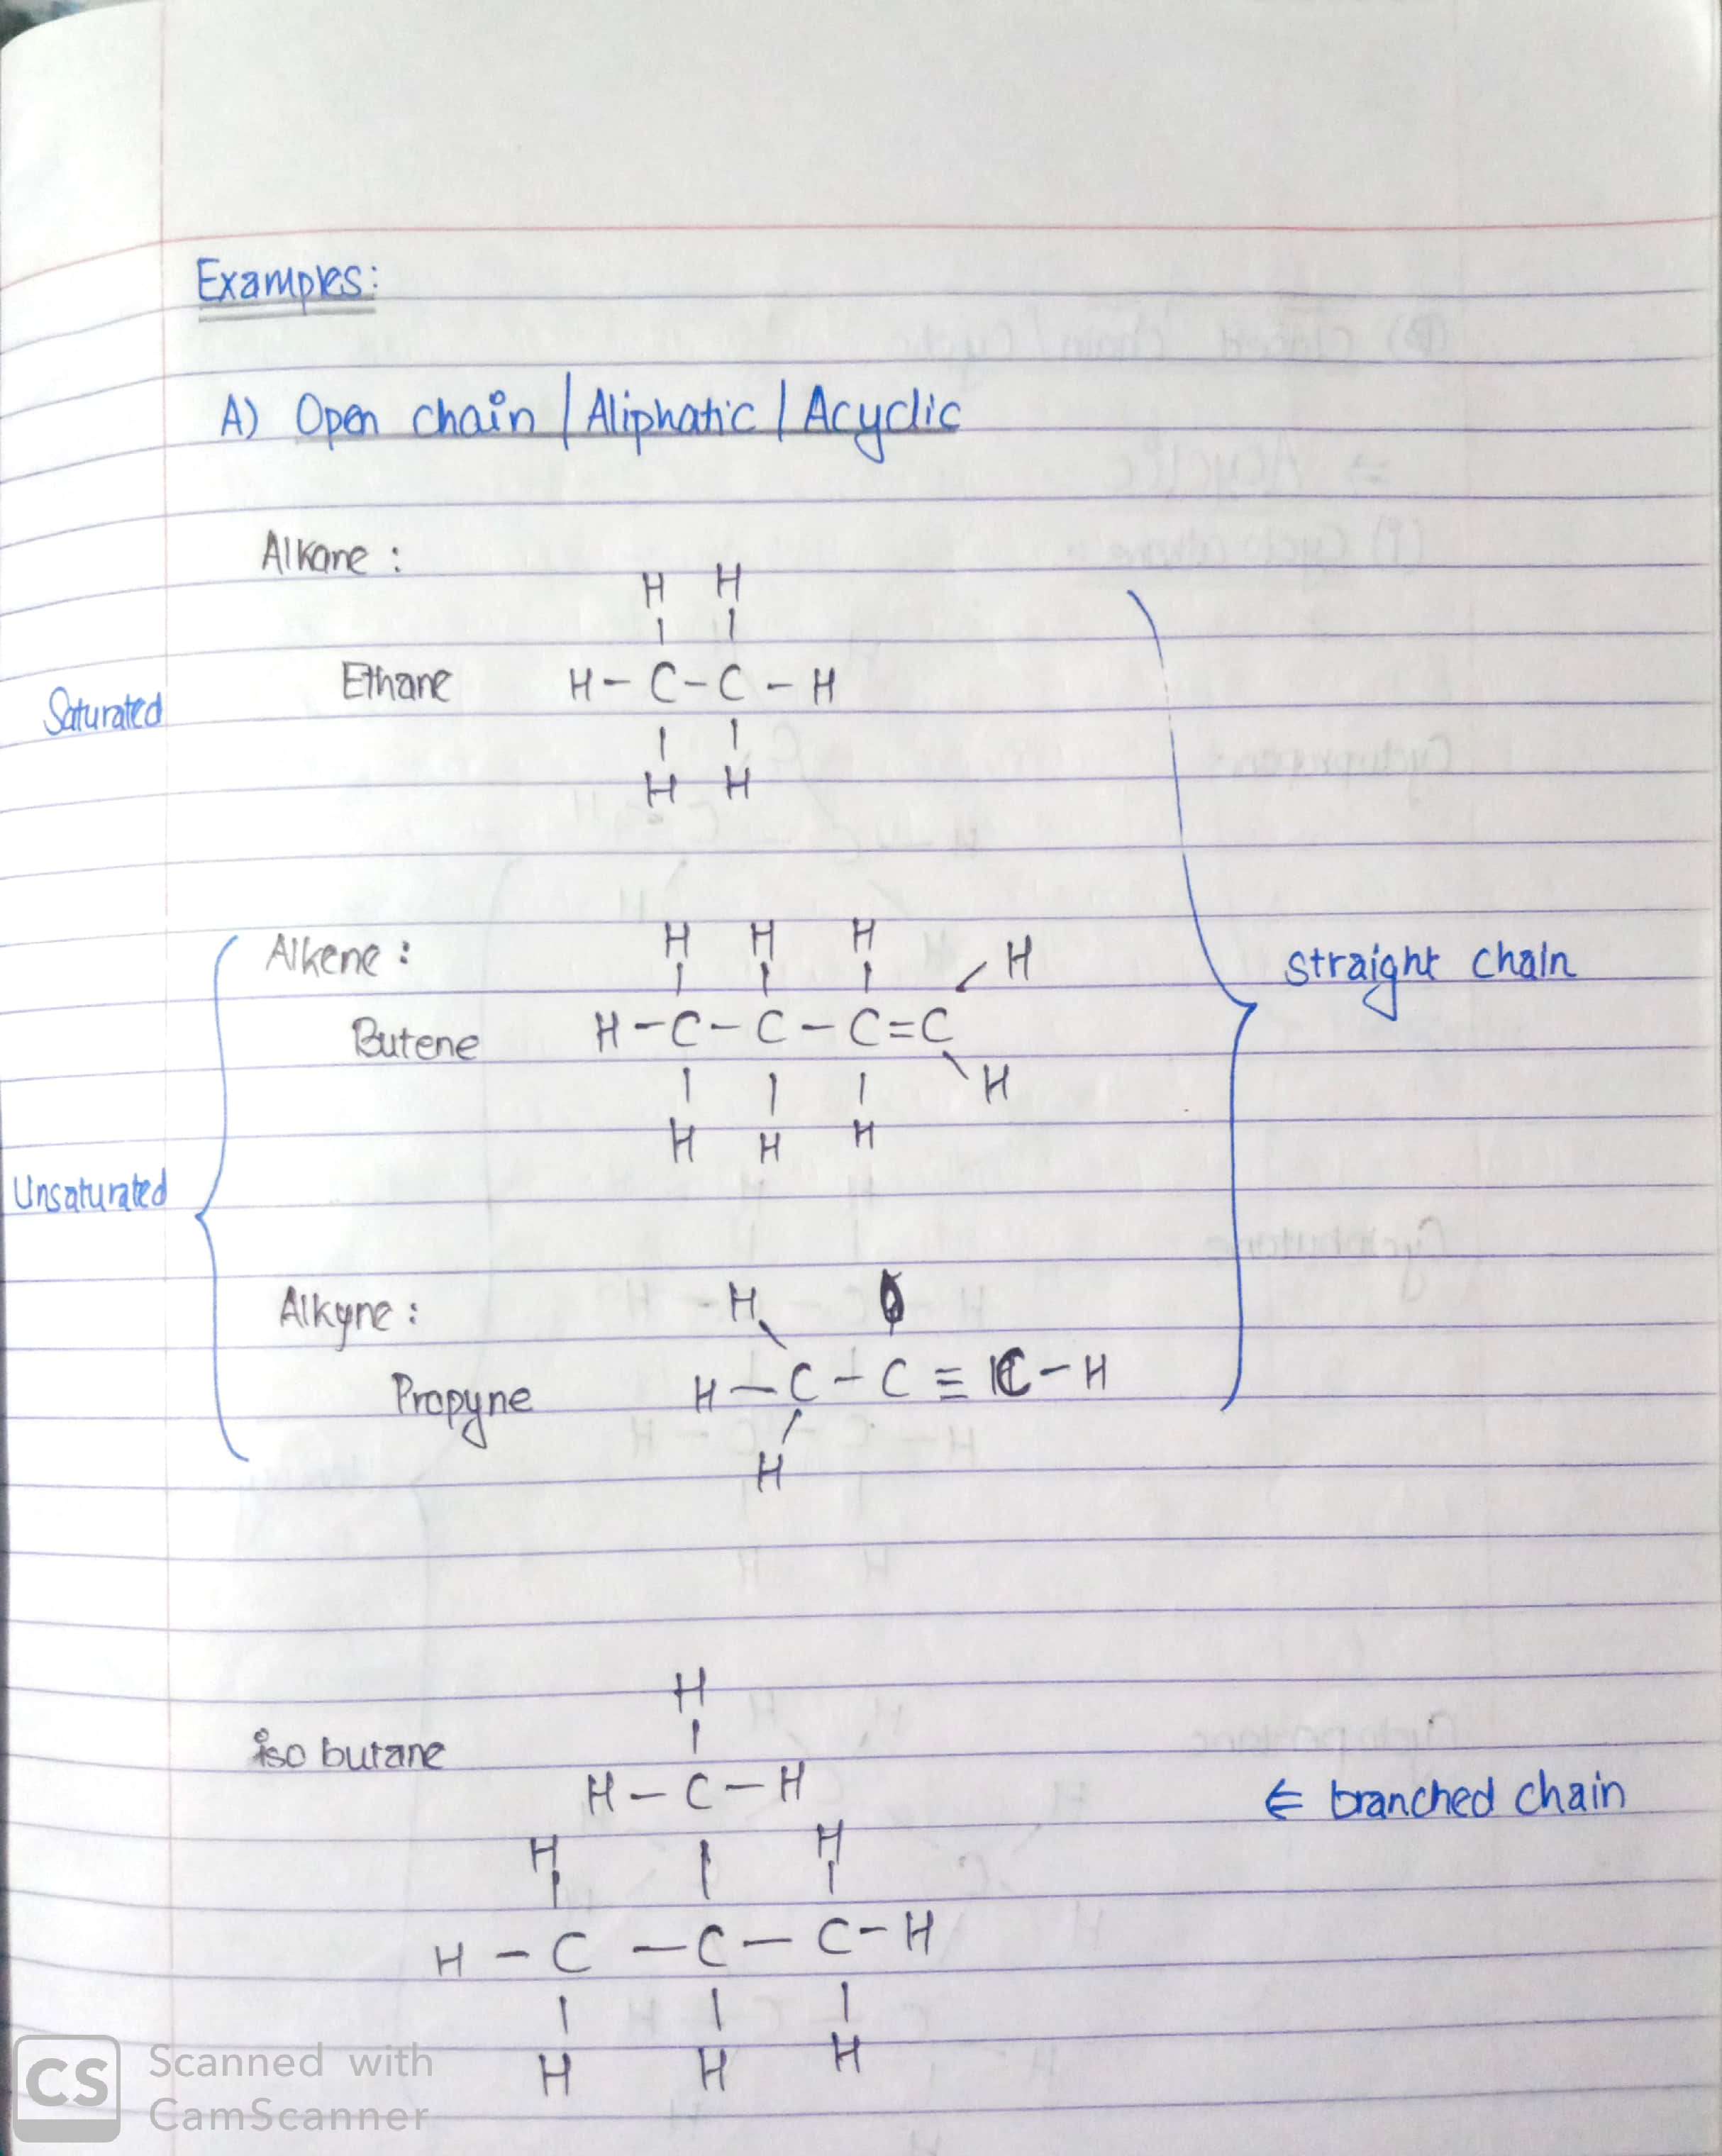 Examples:
A) Open chain / Aliphatic / Acyclic
Alkane :
H H
Ethane H - C - C - H
Saturated
H H
Alkene :
H H H H
straight chain
Butene H - C - C - C = C
H
H H H
Unsaturated
Alkyne :
H
Propyne H - C - C ≡ C - H
H
H
iso butane
H - C - H
← branched chain
H H
H - C - C - C - H
H H H
CS Scanned with
CamScanner